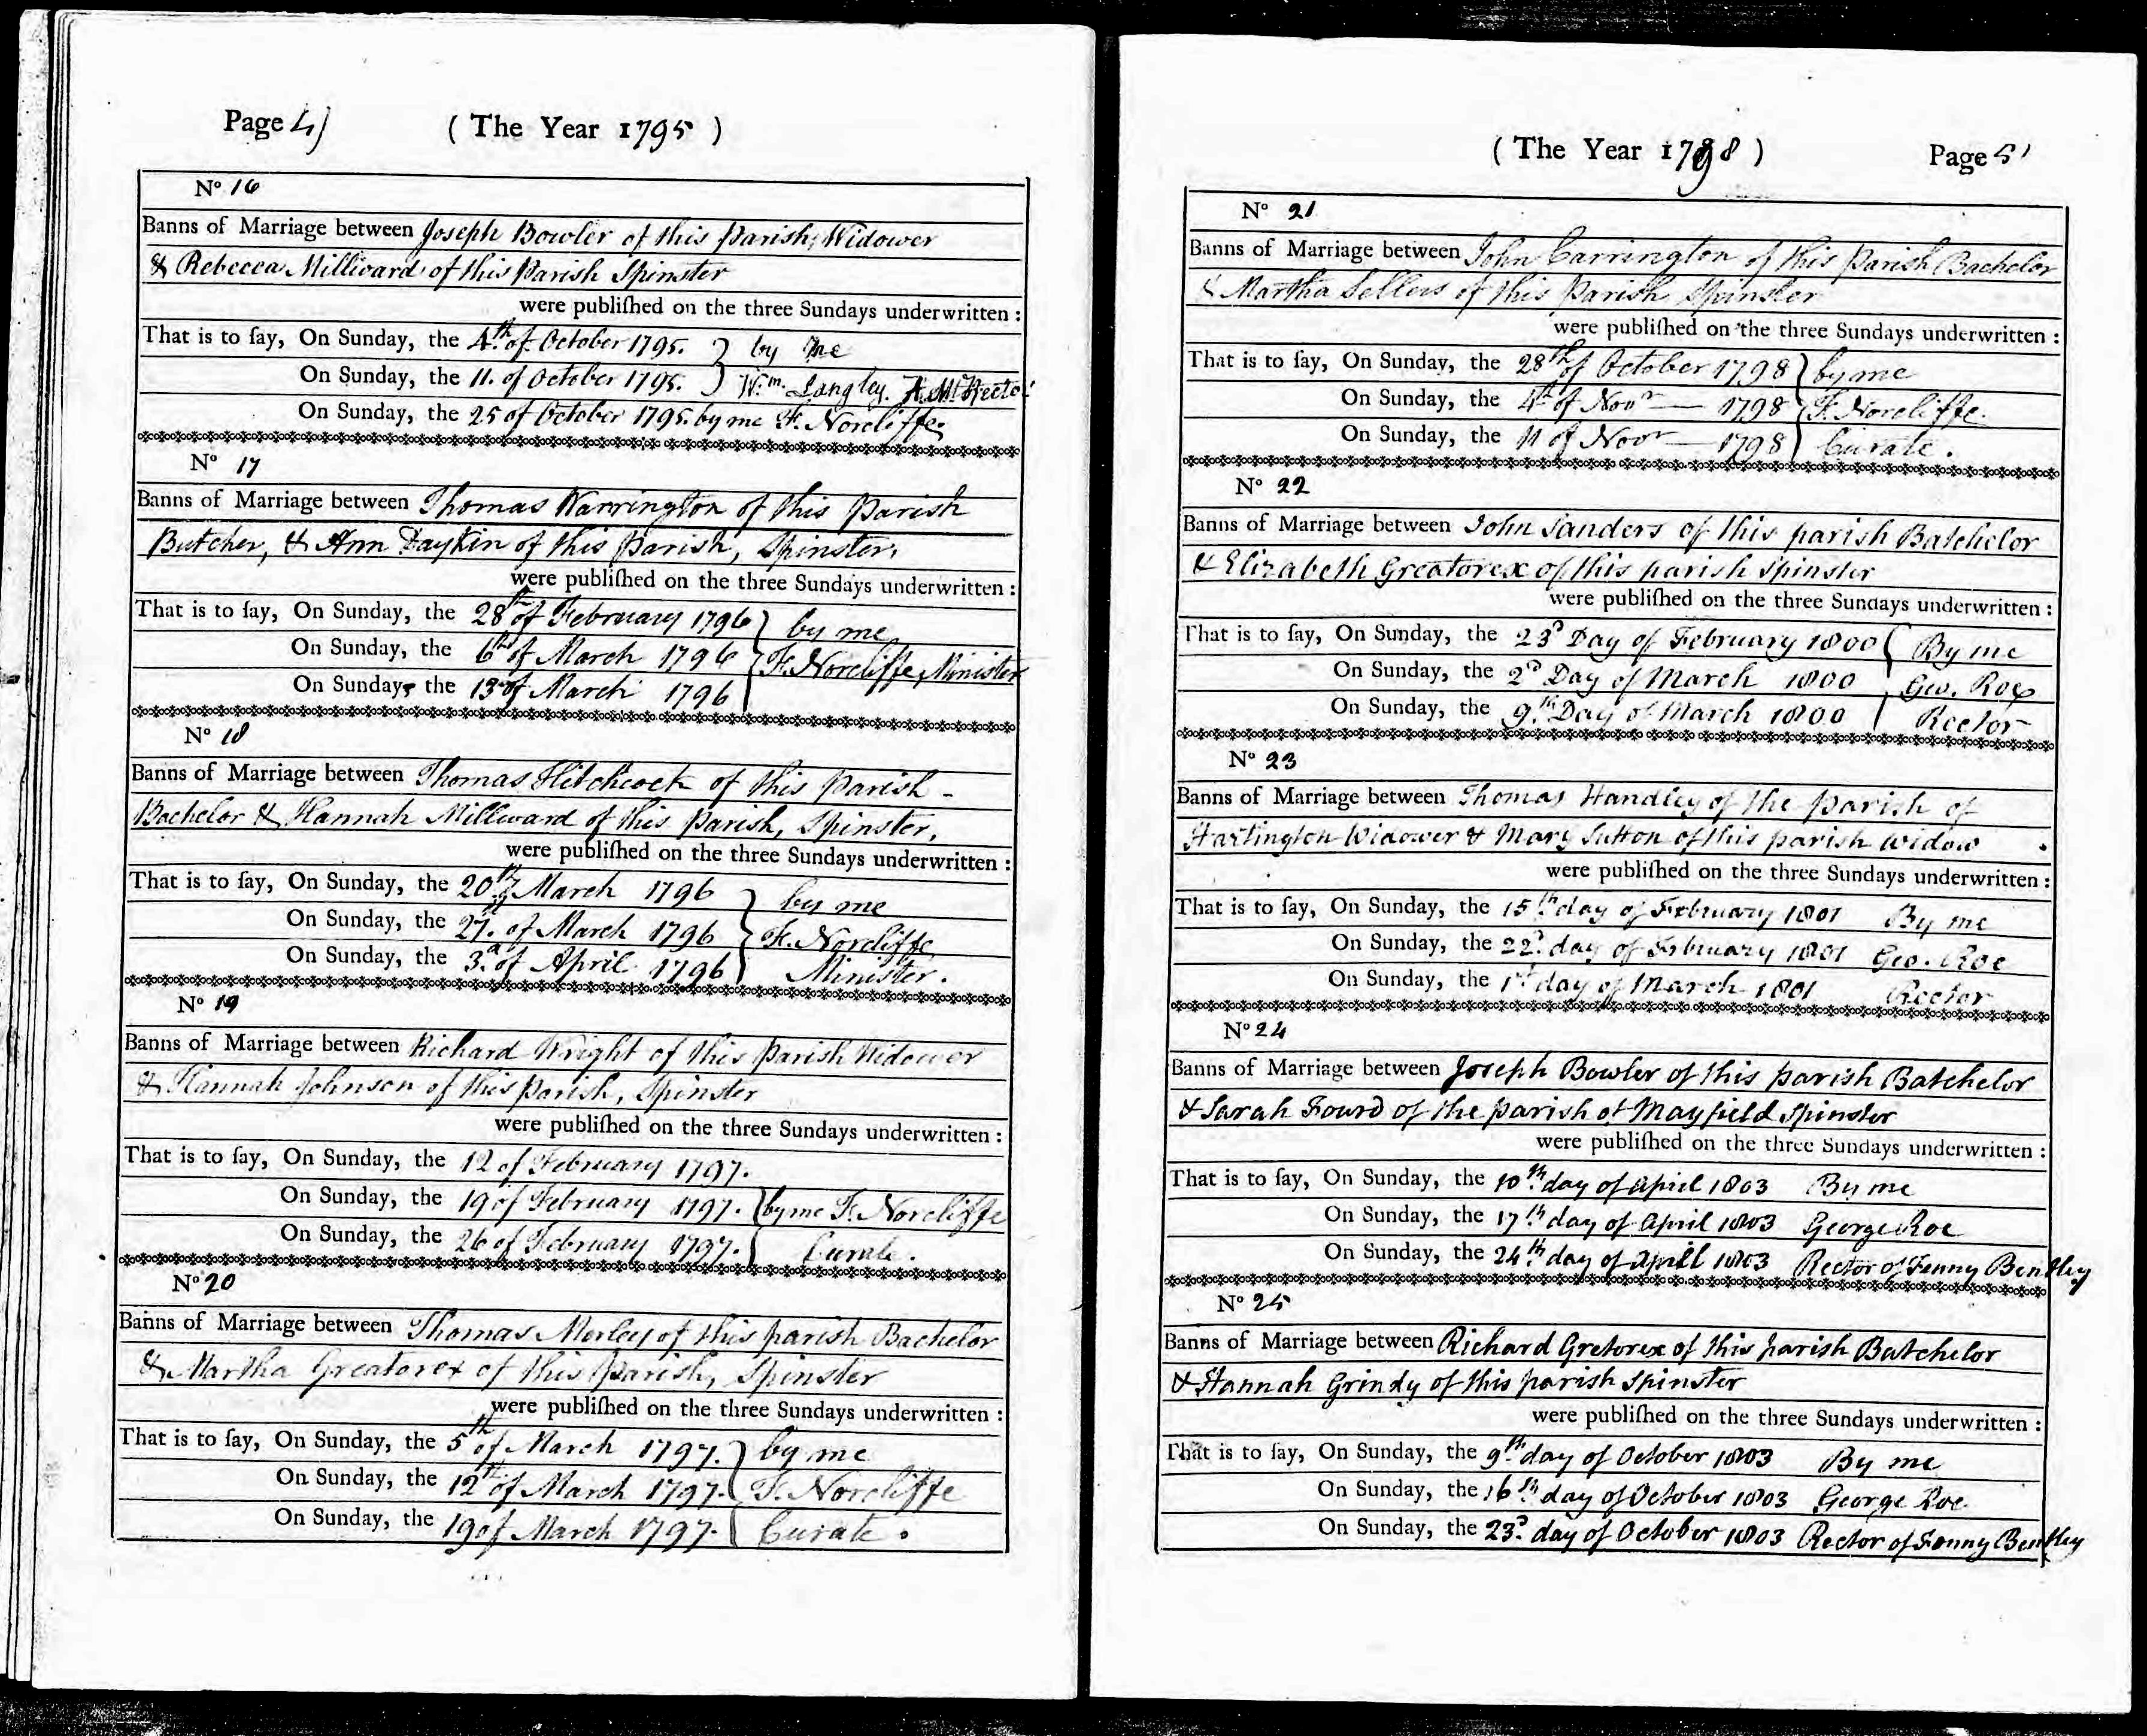 Page 4
( The Year 1795 )
No 16
Banns of Marriage between Joseph Bowler of this Parish, Widower
& Rebecca Milliward of this Parish Spinster
were publiſhed on the three Sundays underwritten :
That is to ſay, On Sunday, the 4th of October 1795. } by me
On Sunday, the 11. of October 1795. } Wm. Langley. Rector
On Sunday, the 25 of October 1795. by me F. Norcliffe.
No 17
Banns of Marriage between Thomas Warrington of this Parish
Butcher, & Ann Daykin of this Parish, Spinster,
were publiſhed on the three Sundays underwritten :
That is to ſay, On Sunday, the 28th of February 1796 } by me
On Sunday, the 6th of March 1796 } F. Norcliffe, Minister
On Sunday, the 13 of March 1796
No 18
Banns of Marriage between Thomas Hitchcock of this Parish -
Bachelor & Hannah Millward of this Parish, Spinster,
were publiſhed on the three Sundays underwritten :
That is to ſay, On Sunday, the 20th of March 1796 } by me
On Sunday, the 27. of March 1796 } F. Norcliffe
On Sunday, the 3.d of April 1796 } Minister.
No 19
Banns of Marriage between Richard Wright of this Parish Widower
& Hannah Johnson of this Parish, Spinster
were publiſhed on the three Sundays underwritten :
That is to ſay, On Sunday, the 12 of February 1797.
On Sunday, the 19 of February 1797. } by me F. Norcliffe
On Sunday, the 26 of February 1797. } Curate.
No 20
Banns of Marriage between Thomas Morley of this parish Bachelor
& Martha Greatorex of this Parish, Spinster
were publiſhed on the three Sundays underwritten :
That is to ſay, On Sunday, the 5th of March 1797. } by me
On Sunday, the 12th of March 1797. } F. Norcliffe
On Sunday, the 19 of March 1797. } Curate.
( The Year 1798 )
Page 5
No 21
Banns of Marriage between John Carrington of this Parish Bachelor
& Martha Sellers of this Parish Spinster
were publiſhed on the three Sundays underwritten :
That is to ſay, On Sunday, the 28th of October 1798 } by me
On Sunday, the 4th of Novr — 1798 } F. Norcliffe.
On Sunday, the 11 of Novr — 1798 } Curate.
No 22
Banns of Marriage between John Sanders of this parish Batchelor
& Elizabeth Greatorex of this parish Spinster
were publiſhed on the three Sundays underwritten :
That is to ſay, On Sunday, the 23d Day of February 1800 } By me
On Sunday, the 2d Day of March 1800 } Geo. Roe
On Sunday, the 9th Day of March 1800 } Rector
No 23
Banns of Marriage between Thomas Handley of the parish of
Hartington Widower & Mary Sutton of this parish Widow
were publiſhed on the three Sundays underwritten :
That is to ſay, On Sunday, the 15th day of February 1801 By me
On Sunday, the 22d. day of February 1801 Geo. Roe
On Sunday, the 1st day of March 1801 Rector
No 24
Banns of Marriage between Joseph Bowler of this parish Batchelor
& Sarah Fourd of the parish of Mayfield Spinster
were publiſhed on the three Sundays underwritten :
That is to ſay, On Sunday, the 10th day of april 1803 By me
On Sunday, the 17th day of april 1803 George Roe
On Sunday, the 24th day of april 1803 Rector of Fenny Bentley
No 25
Banns of Marriage between Richard Gretorex of this parish Batchelor
& Hannah Grindy of this parish Spinster
were publiſhed on the three Sundays underwritten :
That is to ſay, On Sunday, the 9th day of October 1803 By me
On Sunday, the 16th day of October 1803 George Roe
On Sunday, the 23d. day of October 1803 Rector of Fenny Bentley